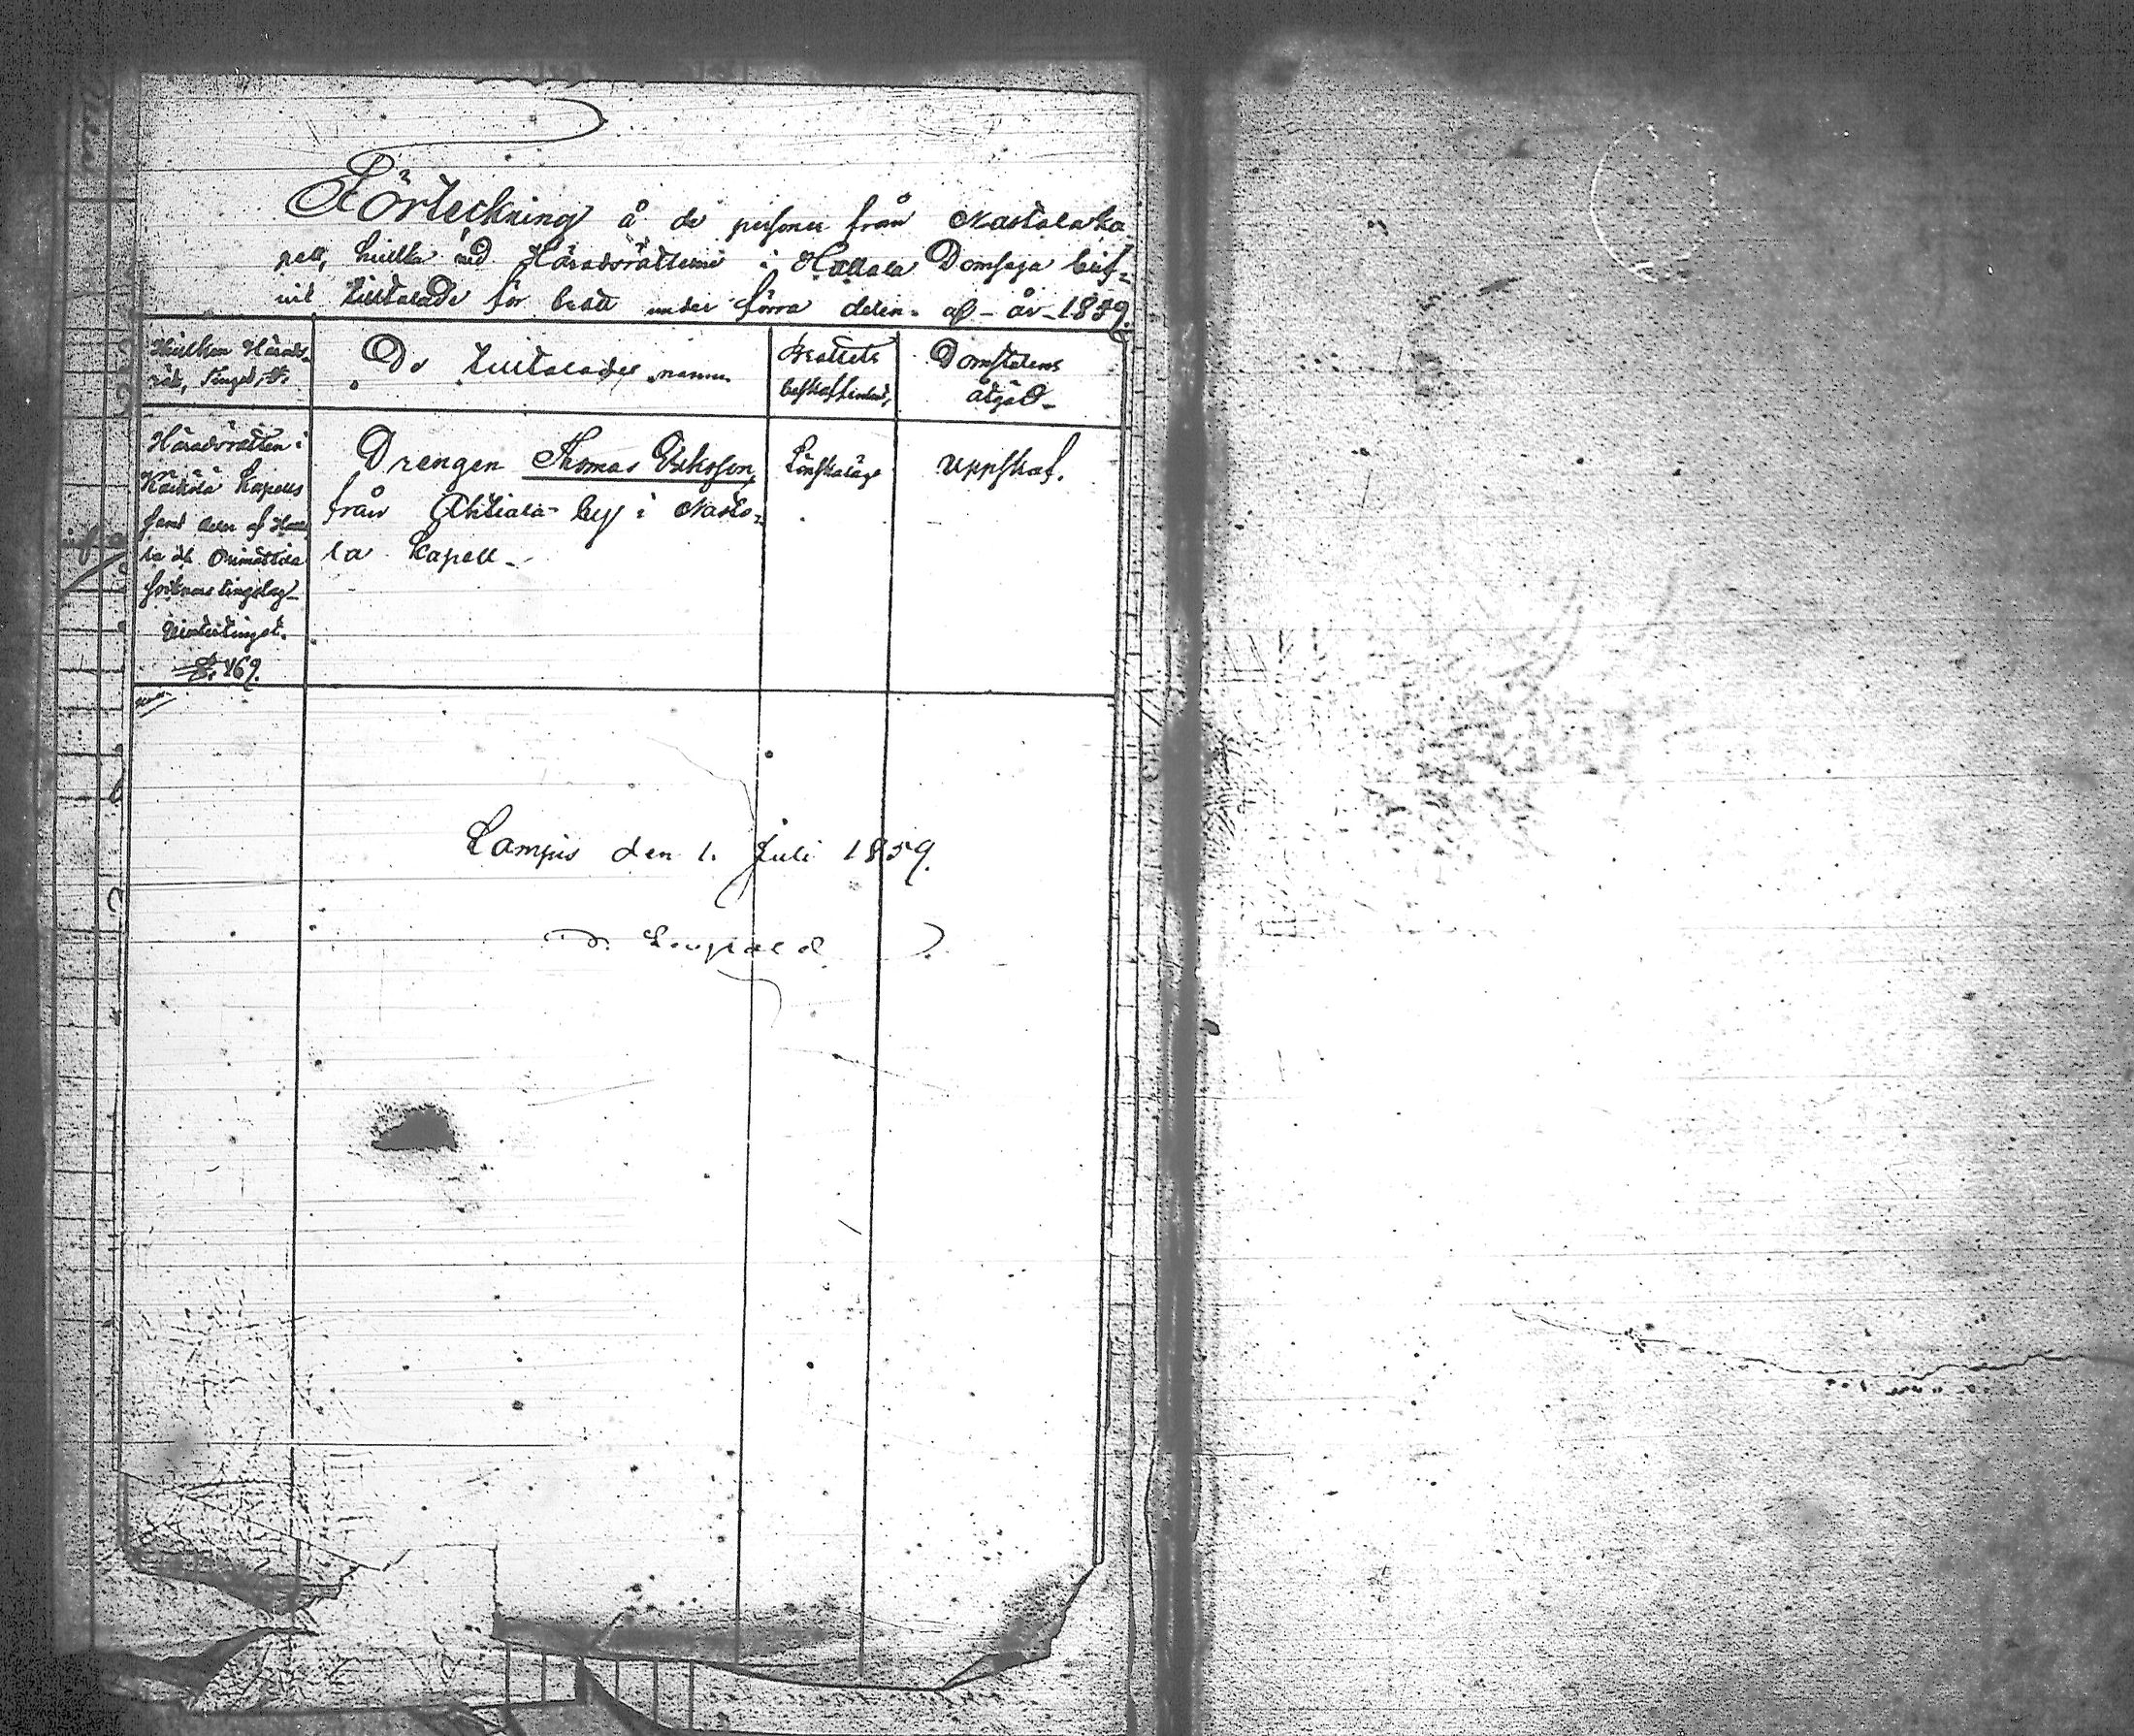 Förteckning å de personer från Nastola ka-
pell, hvilka vid Häradsrätterne i Hollola Domsaga blif-
vit tilltalade för brott under förra delen af år 1859.
Hvilken Härads-
rätt, Tinget, §.
De tilltalades namn
Brottets
beskaffenhet,
Domstolens
åtgärd
Häradsrätten i
Kärkölä kapells
samt delar af Hollo-
la och Orimattila
socknars tingslag
Vintertinget.
§. 169.
Drengen Thomas Eriksson
från Ahtiala by i Nasto-
la kapell
Lönskaläge
Uppskof.
Lampis den 1. Juli 1859.